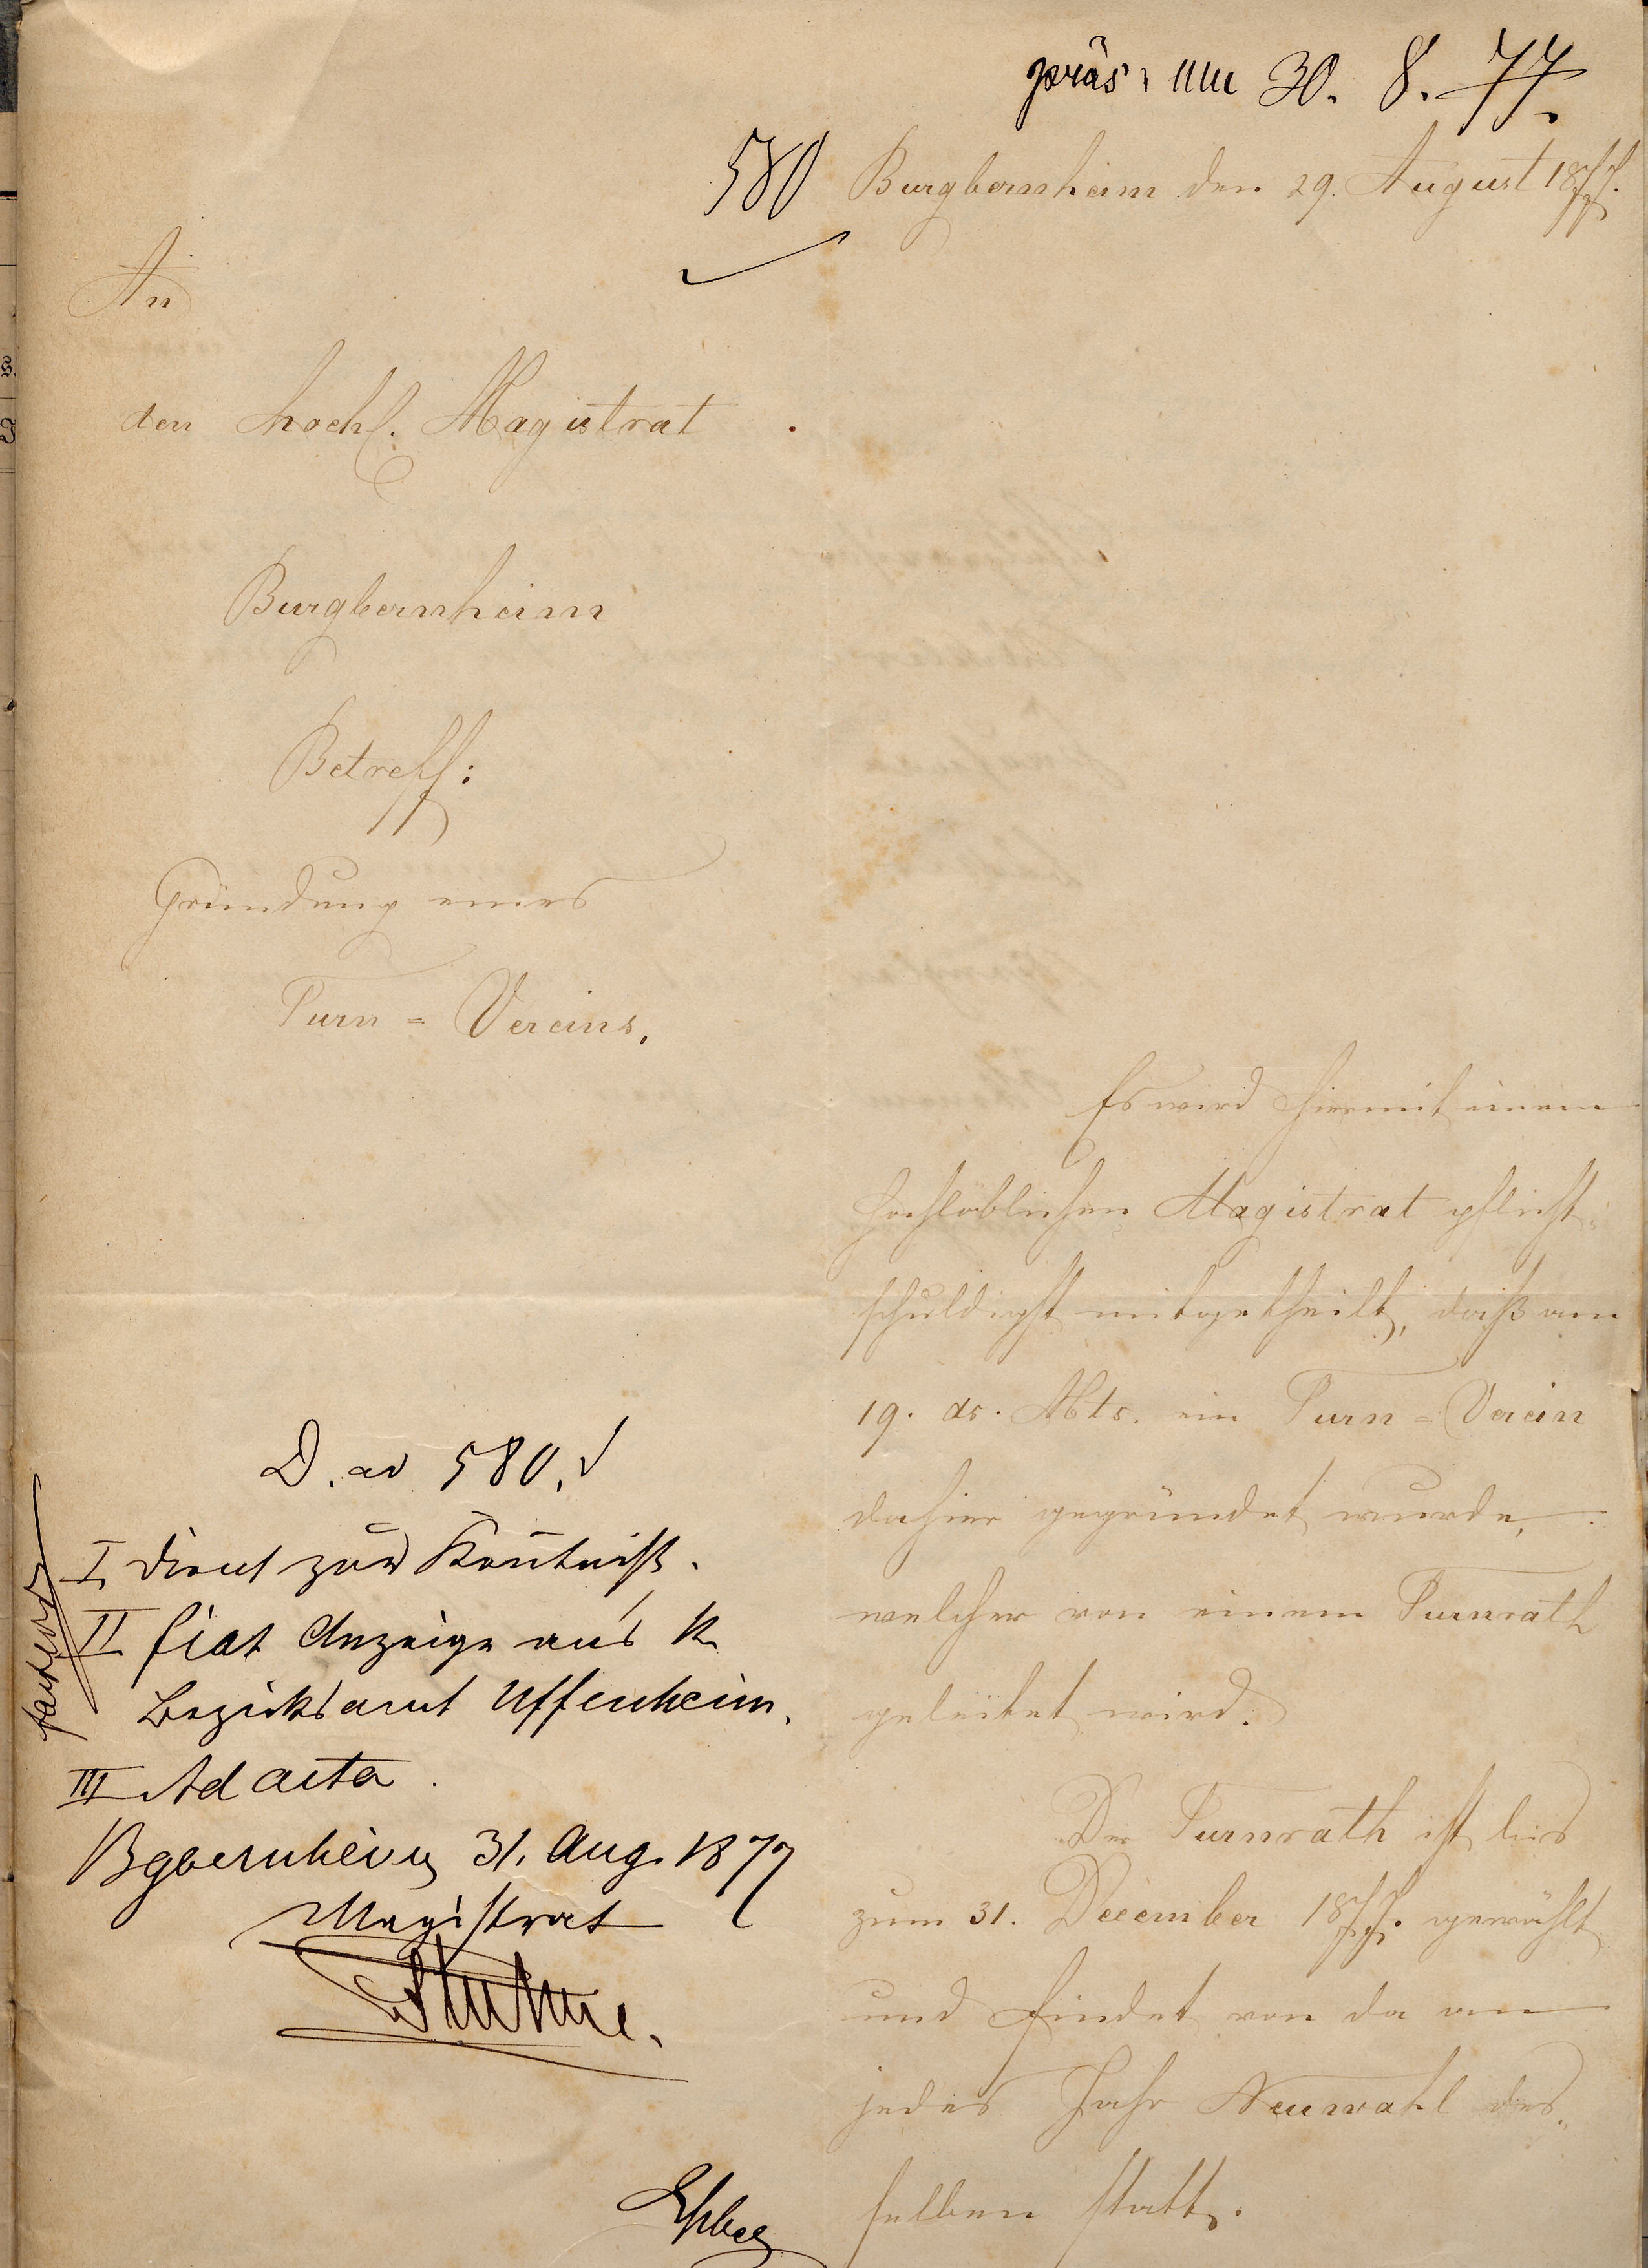 präs. am 30. 8. 77.
580 Burgbernheim den 29. August 1877.
An
den hochl. Magistrat
Burgbernheim
Betreff:
Gründung eines
Turn = Vereins.
Es wird hiermit einem
hochlöblichen Magistrat pflicht-
schuldigst mitgetheilt, daß am
19. ds. Mts. ein Turn = Verein
dahier gegründet wurde,
welcher von einem Turnrath
geleitet wird.
Der Turnrath ist bis
zum 31. December 1877. gewählt
und findet von da an
jedes Jahr Neuwahl des-
selben statt.
D. ad 580.
I dient zur Kenntniß.
II fiat Anzeige ans k.
Bezirksamt Uffenheim.
III Ad acta.
Bgbernheim 31. Aug. 1877
Magistrat